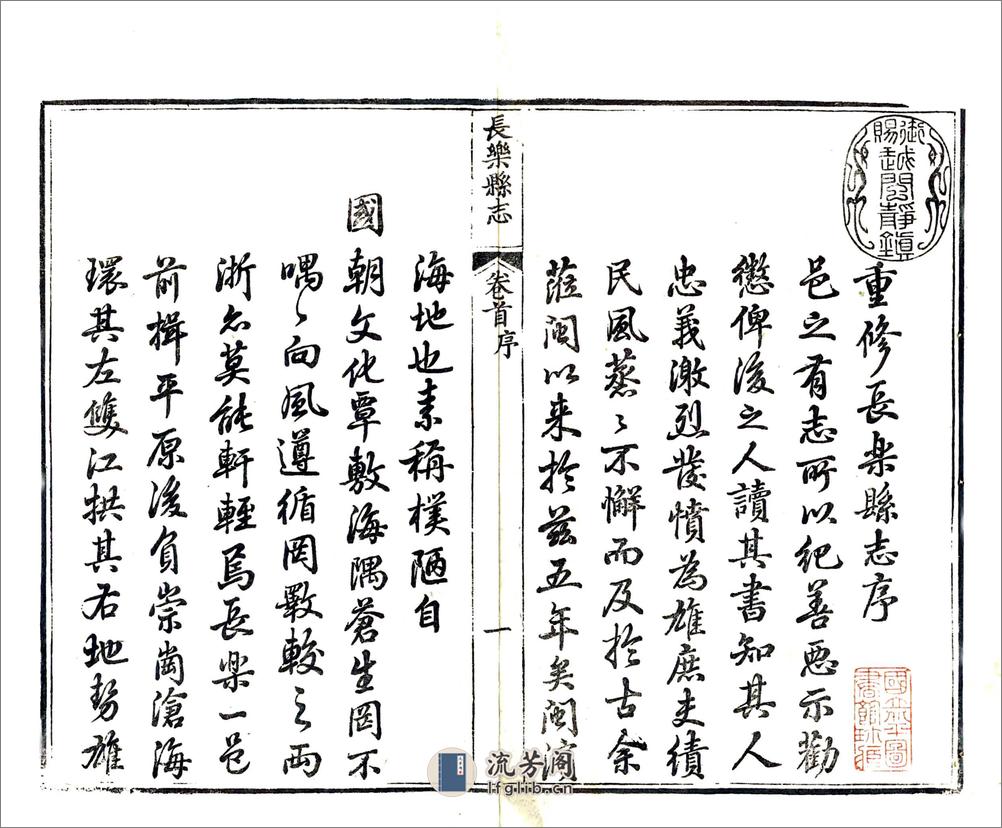 御賜
越閩靜鎮
重修長樂縣志序
邑之有志所以紀善惡示勸
懲俾後之人讀其書知其人
忠義激烈發憤為雄庶吏績
民風蒸〻不懈而及於古余
蒞閩以来於茲五年矣閩濱
長樂縣志
卷首序
一
海地也素稱樸陋自
國朝文化覃敷海隅蒼生罔不
喁〻向風遵循罔斁較之兩
浙亦莫能軒輊焉長樂一邑
前揖平原後負崇崗滄海
環其左雙江拱其右地勢雄
流芳阁
lfglib.cn